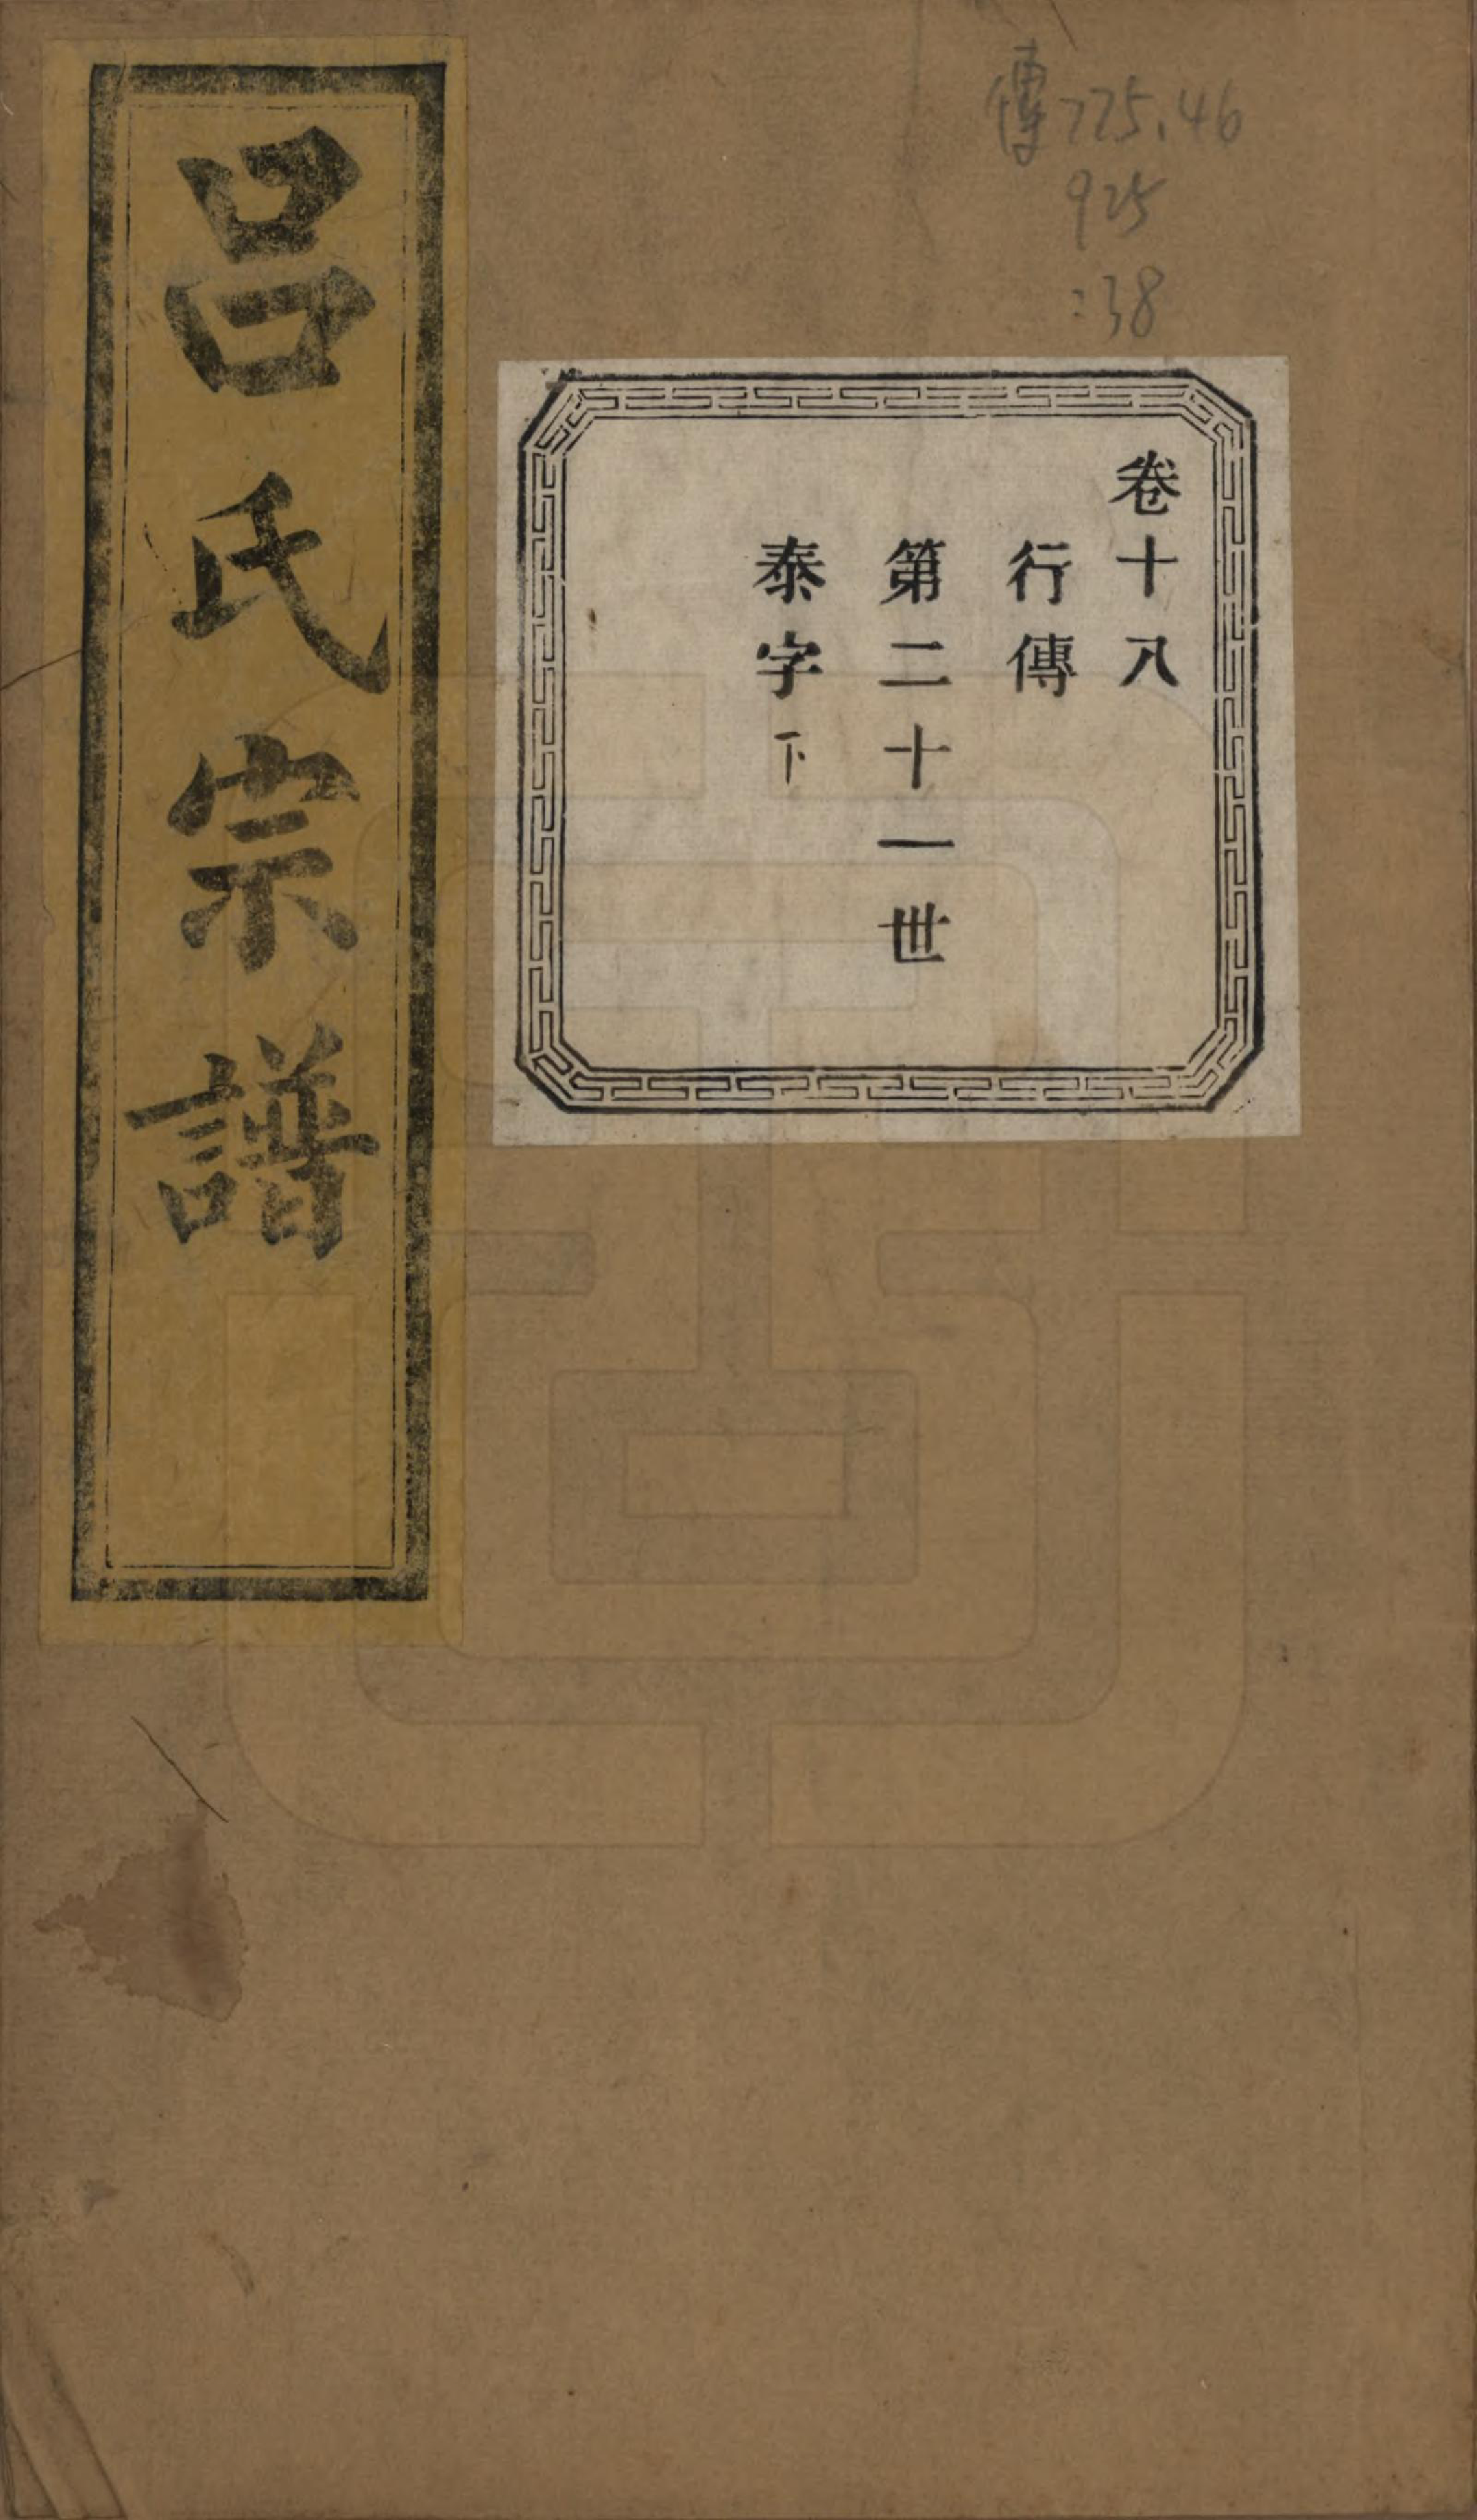 傳775.46
925
:38
卷十八
行傳
第二十一世
泰字下
呂氏宗譜